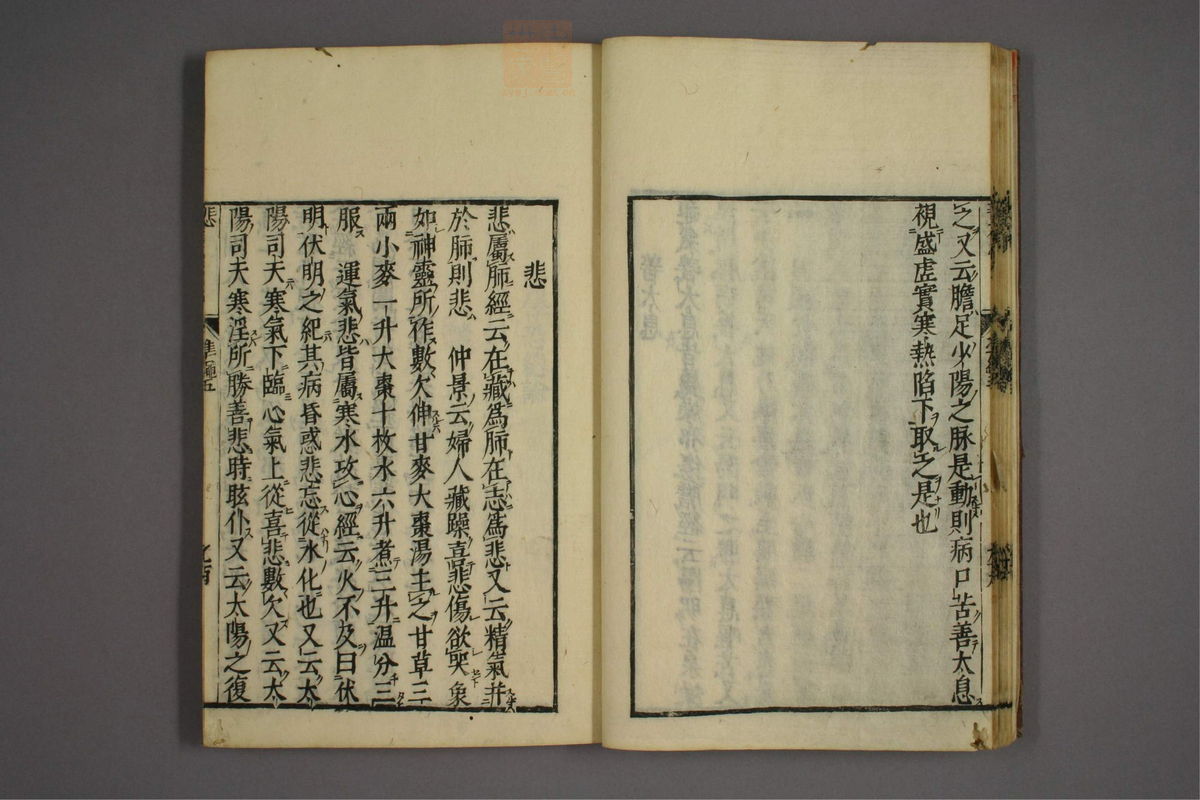 之又云膽足少陽之脉是動則病口苦善太息
視盛虛實寒熱陷下取之是也
悲
悲屬肺經云在藏爲肺在志爲悲又云精氣并
於肺則悲　仲景云婦人藏躁喜悲傷欲哭象
如神靈所作數欠伸甘麥大棗湯主之甘草三
兩小麥一升大棗十枚水六升煮三升温分三
服　運氣悲皆屬寒水攻心經云火不及曰伏
明伏明之紀其病昏惑悲忘從水化也又云太
陽司天寒氣下臨心氣上從喜悲數欠又云太
陽司天寒淫所勝善悲時眩仆又云太陽之復
悲
準繩五